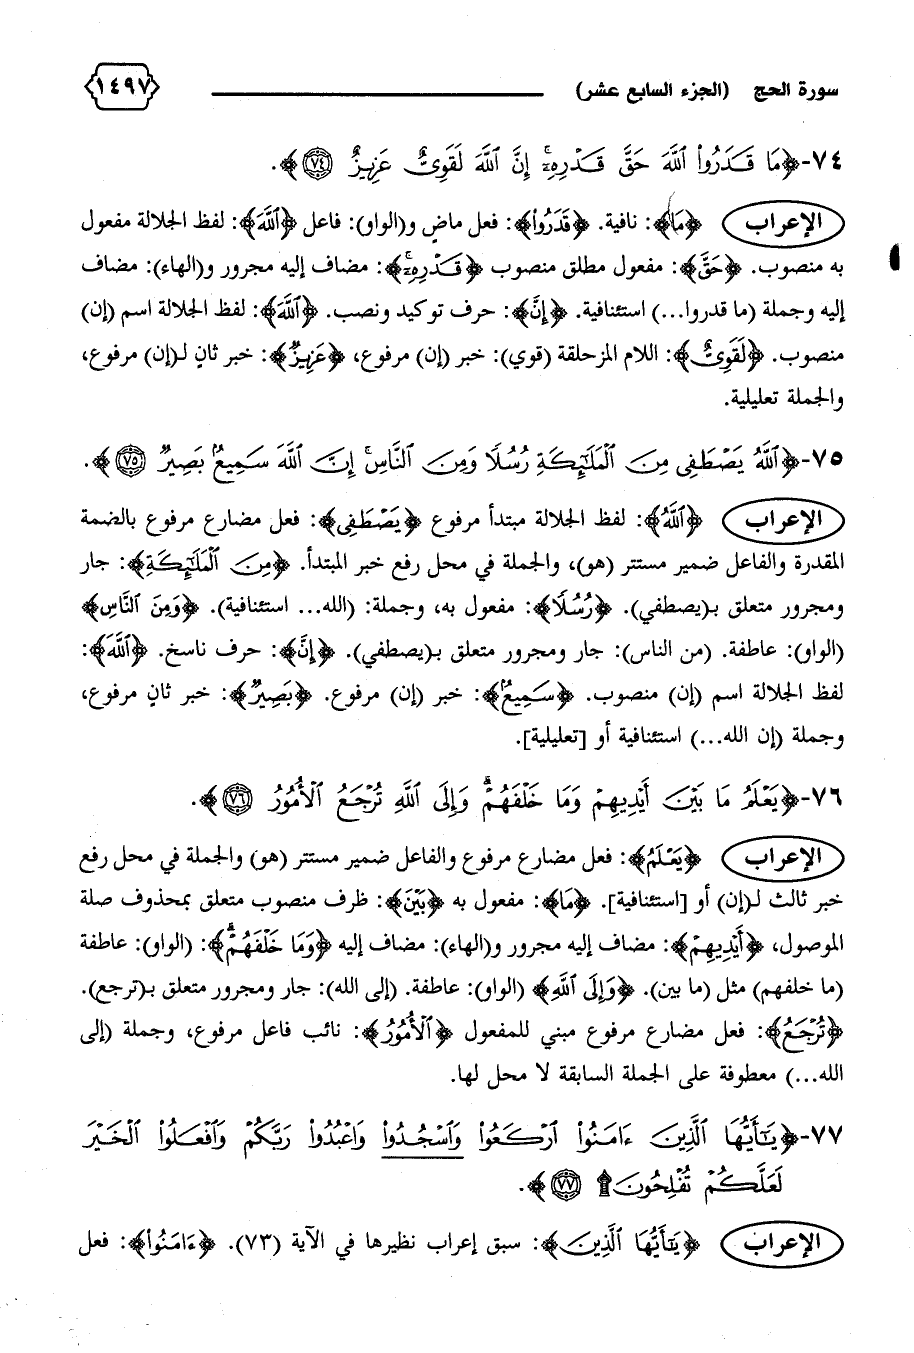 سورة الحج (الجزء السابع عشر) ١٤٩٧
٧٤-﴿مَا قَدَرُوا۟ ٱللَّهَ حَقَّ قَدْرِهِۦٓ ۗ إِنَّ ٱللَّهَ لَقَوِىٌّ عَزِيزٌ ﴿٧٤﴾﴾.
الإعراب ﴿مَا﴾: نافية. ﴿قَدَرُوا۟﴾: فعل ماضٍ و(الواو): فاعل ﴿ٱللَّهَ﴾: لفظ الجلالة مفعول
به منصوب. ﴿حَقَّ﴾: مفعول مطلق منصوب ﴿قَدْرِهِۦ﴾: مضاف إليه مجرور و(الهاء): مضاف
إليه وجملة (ما قدروا...) استئنافية. ﴿إِنَّ﴾: حرف توكيد ونصب. ﴿ٱللَّهَ﴾: لفظ الجلالة اسم (إن)
منصوب. ﴿لَقَوِىٌّ﴾: اللام المزحلقة (قوي): خبر (إن) مرفوع، ﴿عَزِيزٌ﴾: خبر ثانٍ لـ(إن) مرفوع،
والجملة تعليلية.
٧٥-﴿ٱللَّهُ يَصْطَفِى مِنَ ٱلْمَلَٰٓئِكَةِ رُسُلًا وَمِنَ ٱلنَّاسِ ۚ إِنَّ ٱللَّهَ سَمِيعٌۢ بَصِيرٌ ﴿٧٥﴾﴾.
الإعراب ﴿ٱللَّهُ﴾: لفظ الجلالة مبتدأ مرفوع ﴿يَصْطَفِى﴾: فعل مضارع مرفوع بالضمة
المقدرة والفاعل ضمير مستتر (هو)، والجملة في محل رفع خبر المبتدأ. ﴿مِنَ ٱلْمَلَٰٓئِكَةِ﴾: جار
ومجرور متعلق بـ(يصطفي). ﴿رُسُلًا﴾: مفعول به، وجملة: (الله... استئنافية). ﴿وَمِنَ ٱلنَّاسِ﴾
(الواو): عاطفة. (من الناس): جار ومجرور متعلق بـ(يصطفي). ﴿إِنَّ﴾: حرف ناسخ. ﴿ٱللَّهَ﴾:
لفظ الجلالة اسم (إن) منصوب. ﴿سَمِيعٌۢ﴾: خبر (إن) مرفوع. ﴿بَصِيرٌ﴾: خبر ثانٍ مرفوع،
وجملة (إن الله...) استئنافية أو [تعليلية].
٧٦-﴿يَعْلَمُ مَا بَيْنَ أَيْدِيهِمْ وَمَا خَلْفَهُمْ ۗ وَإِلَى ٱللَّهِ تُرْجَعُ ٱلْأُمُورُ ﴿٧٦﴾﴾.
الإعراب ﴿يَعْلَمُ﴾: فعل مضارع مرفوع والفاعل ضمير مستتر (هو) والجملة في محل رفع
خبر ثالث لـ(إن) أو [استئنافية]. ﴿مَا﴾: مفعول به ﴿بَيْنَ﴾: ظرف منصوب متعلق بمحذوف صلة
الموصول، ﴿أَيْدِيهِمْ﴾: مضاف إليه مجرور و(الهاء): مضاف إليه ﴿وَمَا خَلْفَهُمْ ۗ﴾: (الواو): عاطفة
(ما خلفهم) مثل (ما بين). ﴿وَإِلَى ٱللَّهِ﴾ (الواو): عاطفة. (إلى الله): جار ومجرور متعلق بـ(ترجع).
﴿تُرْجَعُ﴾: فعل مضارع مرفوع مبني للمفعول ﴿ٱلْأُمُورُ﴾: نائب فاعل مرفوع، وجملة (إلى
الله...) معطوفة على الجملة السابقة لا محل لها.
٧٧-﴿يَٰٓأَيُّهَا ٱلَّذِينَ ءَامَنُوا۟ ٱرْكَعُوا۟ وَٱسْجُدُوا۟ وَٱعْبُدُوا۟ رَبَّكُمْ وَٱفْعَلُوا۟ ٱلْخَيْرَ
لَعَلَّكُمْ تُفْلِحُونَ ۩ ﴿٧٧﴾﴾.
الإعراب ﴿يَٰٓأَيُّهَا ٱلَّذِينَ﴾: سبق إعراب نظيرها في الآية (٧٣). ﴿ءَامَنُوا۟﴾: فعل